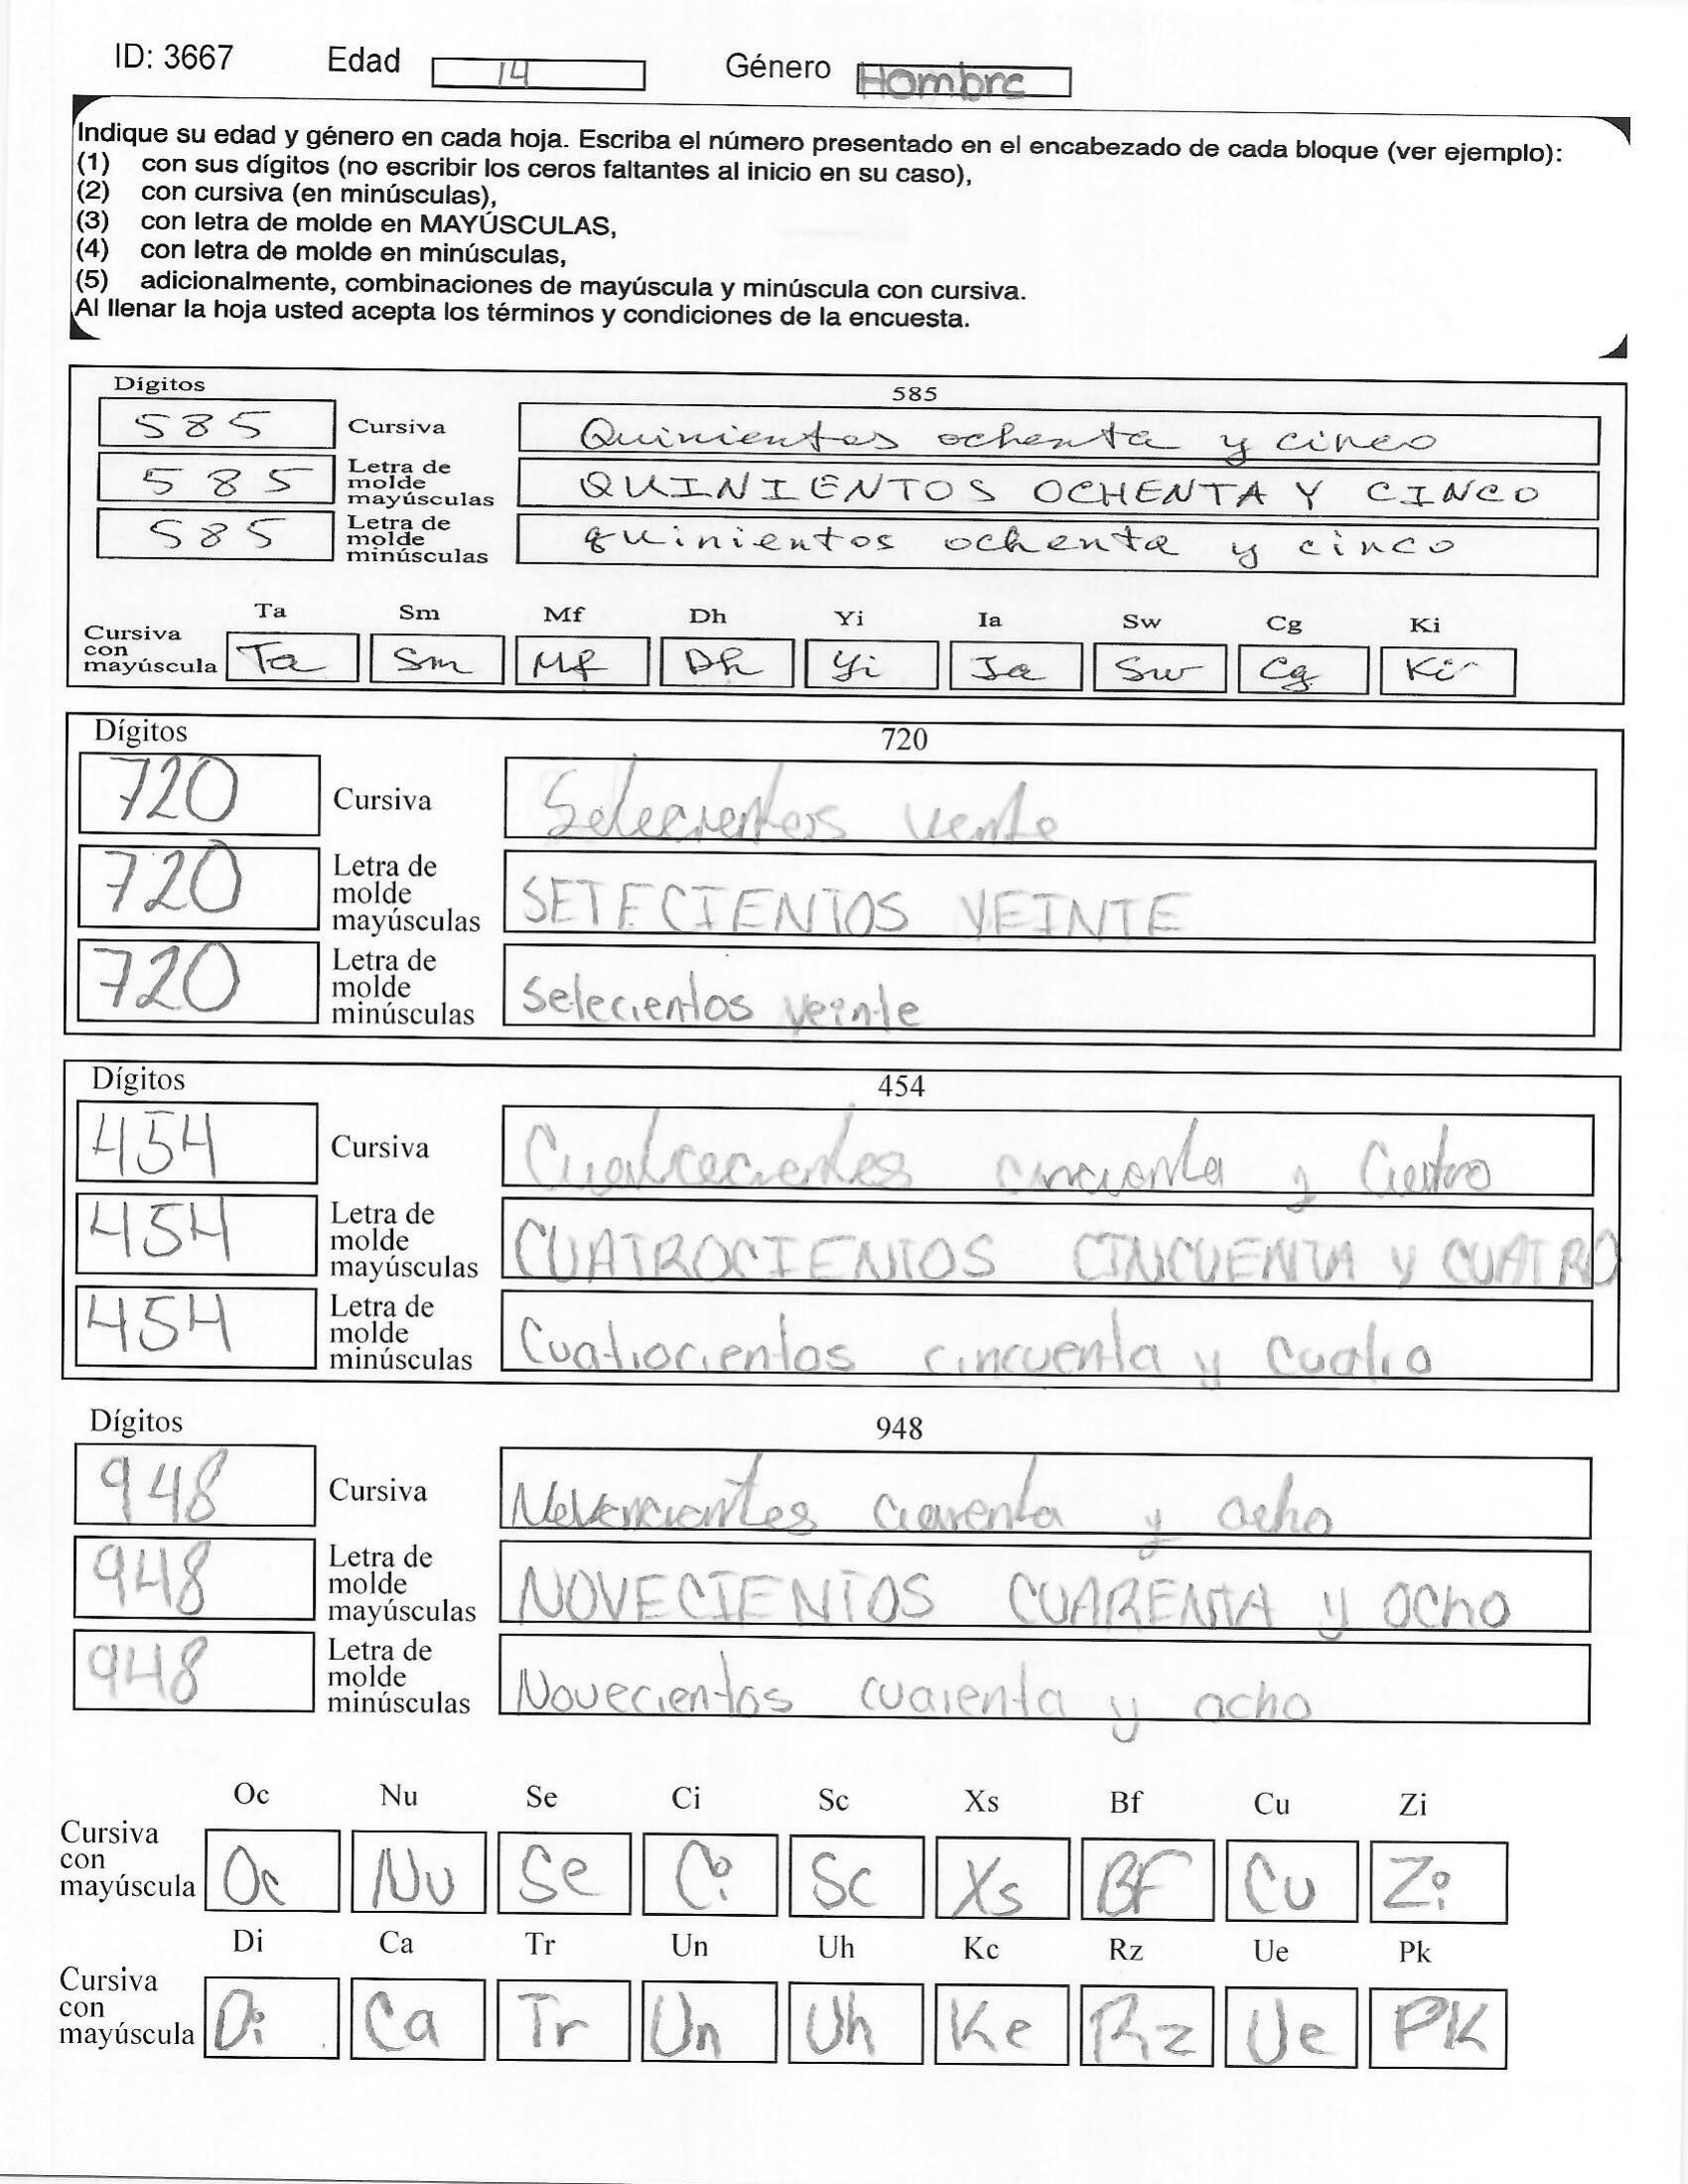 ID: 3667 Edad 14 Género Hombre
Indique su edad y género en cada hoja. Escriba el número presentado en el encabezado de cada bloque (ver ejemplo):
(1) con sus dígitos (no escribir los ceros faltantes al inicio en su caso),
(2) con cursiva (en minúsculas),
(3) con letra de molde en MAYÚSCULAS,
(4) con letra de molde en minúsculas,
(5) adicionalmente, combinaciones de mayúscula y minúscula con cursiva.
Al llenar la hoja usted acepta los términos y condiciones de la encuesta.
Dígitos 585
585 Cursiva Quinientos ochenta y cinco
585 Letra de molde mayúsculas QUINIENTOS OCHENTA Y CINCO
585 Letra de molde minúsculas quinientos ochenta y cinco
Ta Sm Mf Dh Yi Ia Sw Cg Ki
Cursiva con mayúscula Ta Sm Mf Dh Yi Ia Sw Cg Ki
Dígitos 720
720 Cursiva Setecientos vente
720 Letra de molde mayúsculas SETECIENTOS VEINTE
720 Letra de molde minúsculas Setecientos veinte
Dígitos 454
454 Cursiva Cuatrocientos cincuenta y Cuatro
454 Letra de molde mayúsculas CUATROCIENTOS CINCUENTA y CUATRO
454 Letra de molde minúsculas Cuatrocientos cincuenta y Cuatro
Dígitos 948
948 Cursiva cuarenta y ocho
948 Letra de molde mayúsculas NOVECIENTOS CUARENTA y OChO
948 Letra de molde minúsculas Novecientos cuarenta y ocho
Oc Nu Se Ci Sc Xs Bf Cu Zi
Cursiva con mayúscula Oc Nu Se Ci Sc Xs BF Cu Zi
Di Ca Tr Un Uh Kc Rz Ue Pk
Cursiva con mayúscula Di Ca Tr Un Uh Ke Rz Ue PK